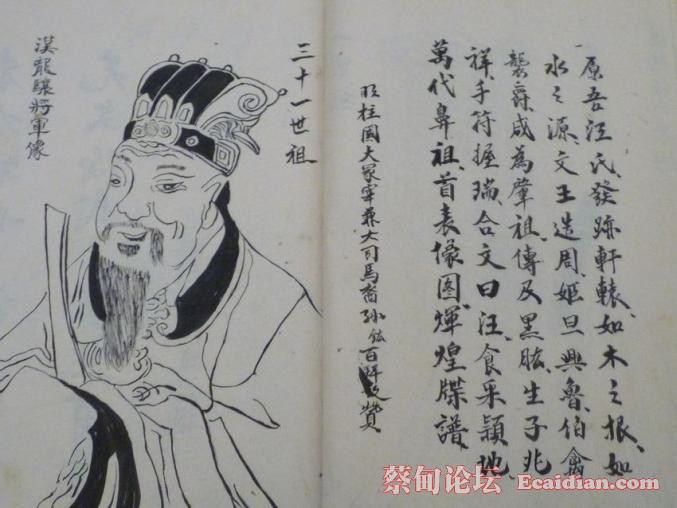 原吾汪氏、發跡軒轅、如木之根、如
水之源、文王造周、姬旦興魯、伯禽
襲爵、咸為肇祖、傳及黑肱、生子兆
祥、手符握瑞、合文曰汪、食采穎地、
萬代鼻祖、首表像圖、煇煌牒譜、
柱國大冢宰兼大司馬裔孫鋐百拜贊
三十一世祖
漢龍驤將軍像
蔡甸论坛 Ecaidian.com